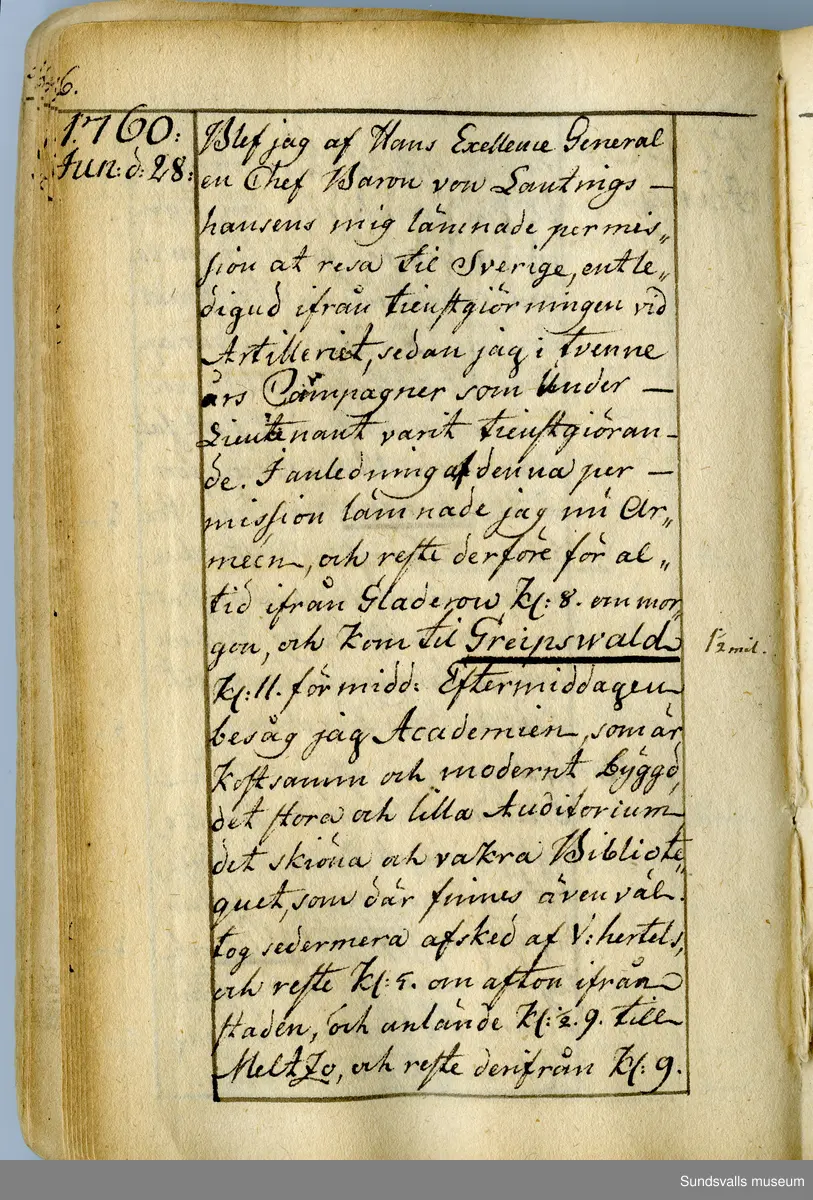 6.
1760:
Jun: d: 28:
Blef jag af Hans Exellence General
en Chef Baron von Lantings —
hausens mig lämnade permis„
sion at resa til Sverige, entle„
digud ifrån tienstgiörningen vid
Artilleriet, sedan jag i tvenne
års Campagner som Under —
Lieutenant varit tienstgiöran-
de. I anledning af denna per —
mission lämnade jag nu Ar„
meén, och reste derföre för al„
tid ifrån Gladerow Kl: 8. om mor„
gon, och kom til Greipswald
1/2 mil.
Kl: 11. för midd: Eftermiddagen
besåg jag Academien, som är
kostsamm och modernt byggd,
det stora och lilla Auditorium
det skiöna och vakra Bibliote„
quet, som där finnes även väl.
tog sedermera afsked af V: hertels,
och reste Kl: 5. om afton ifrån
staden, och anlände Kl: 1/2. 9. till
Meltzo, och reste derifrån Kl: 9.
Sundsvalls museum